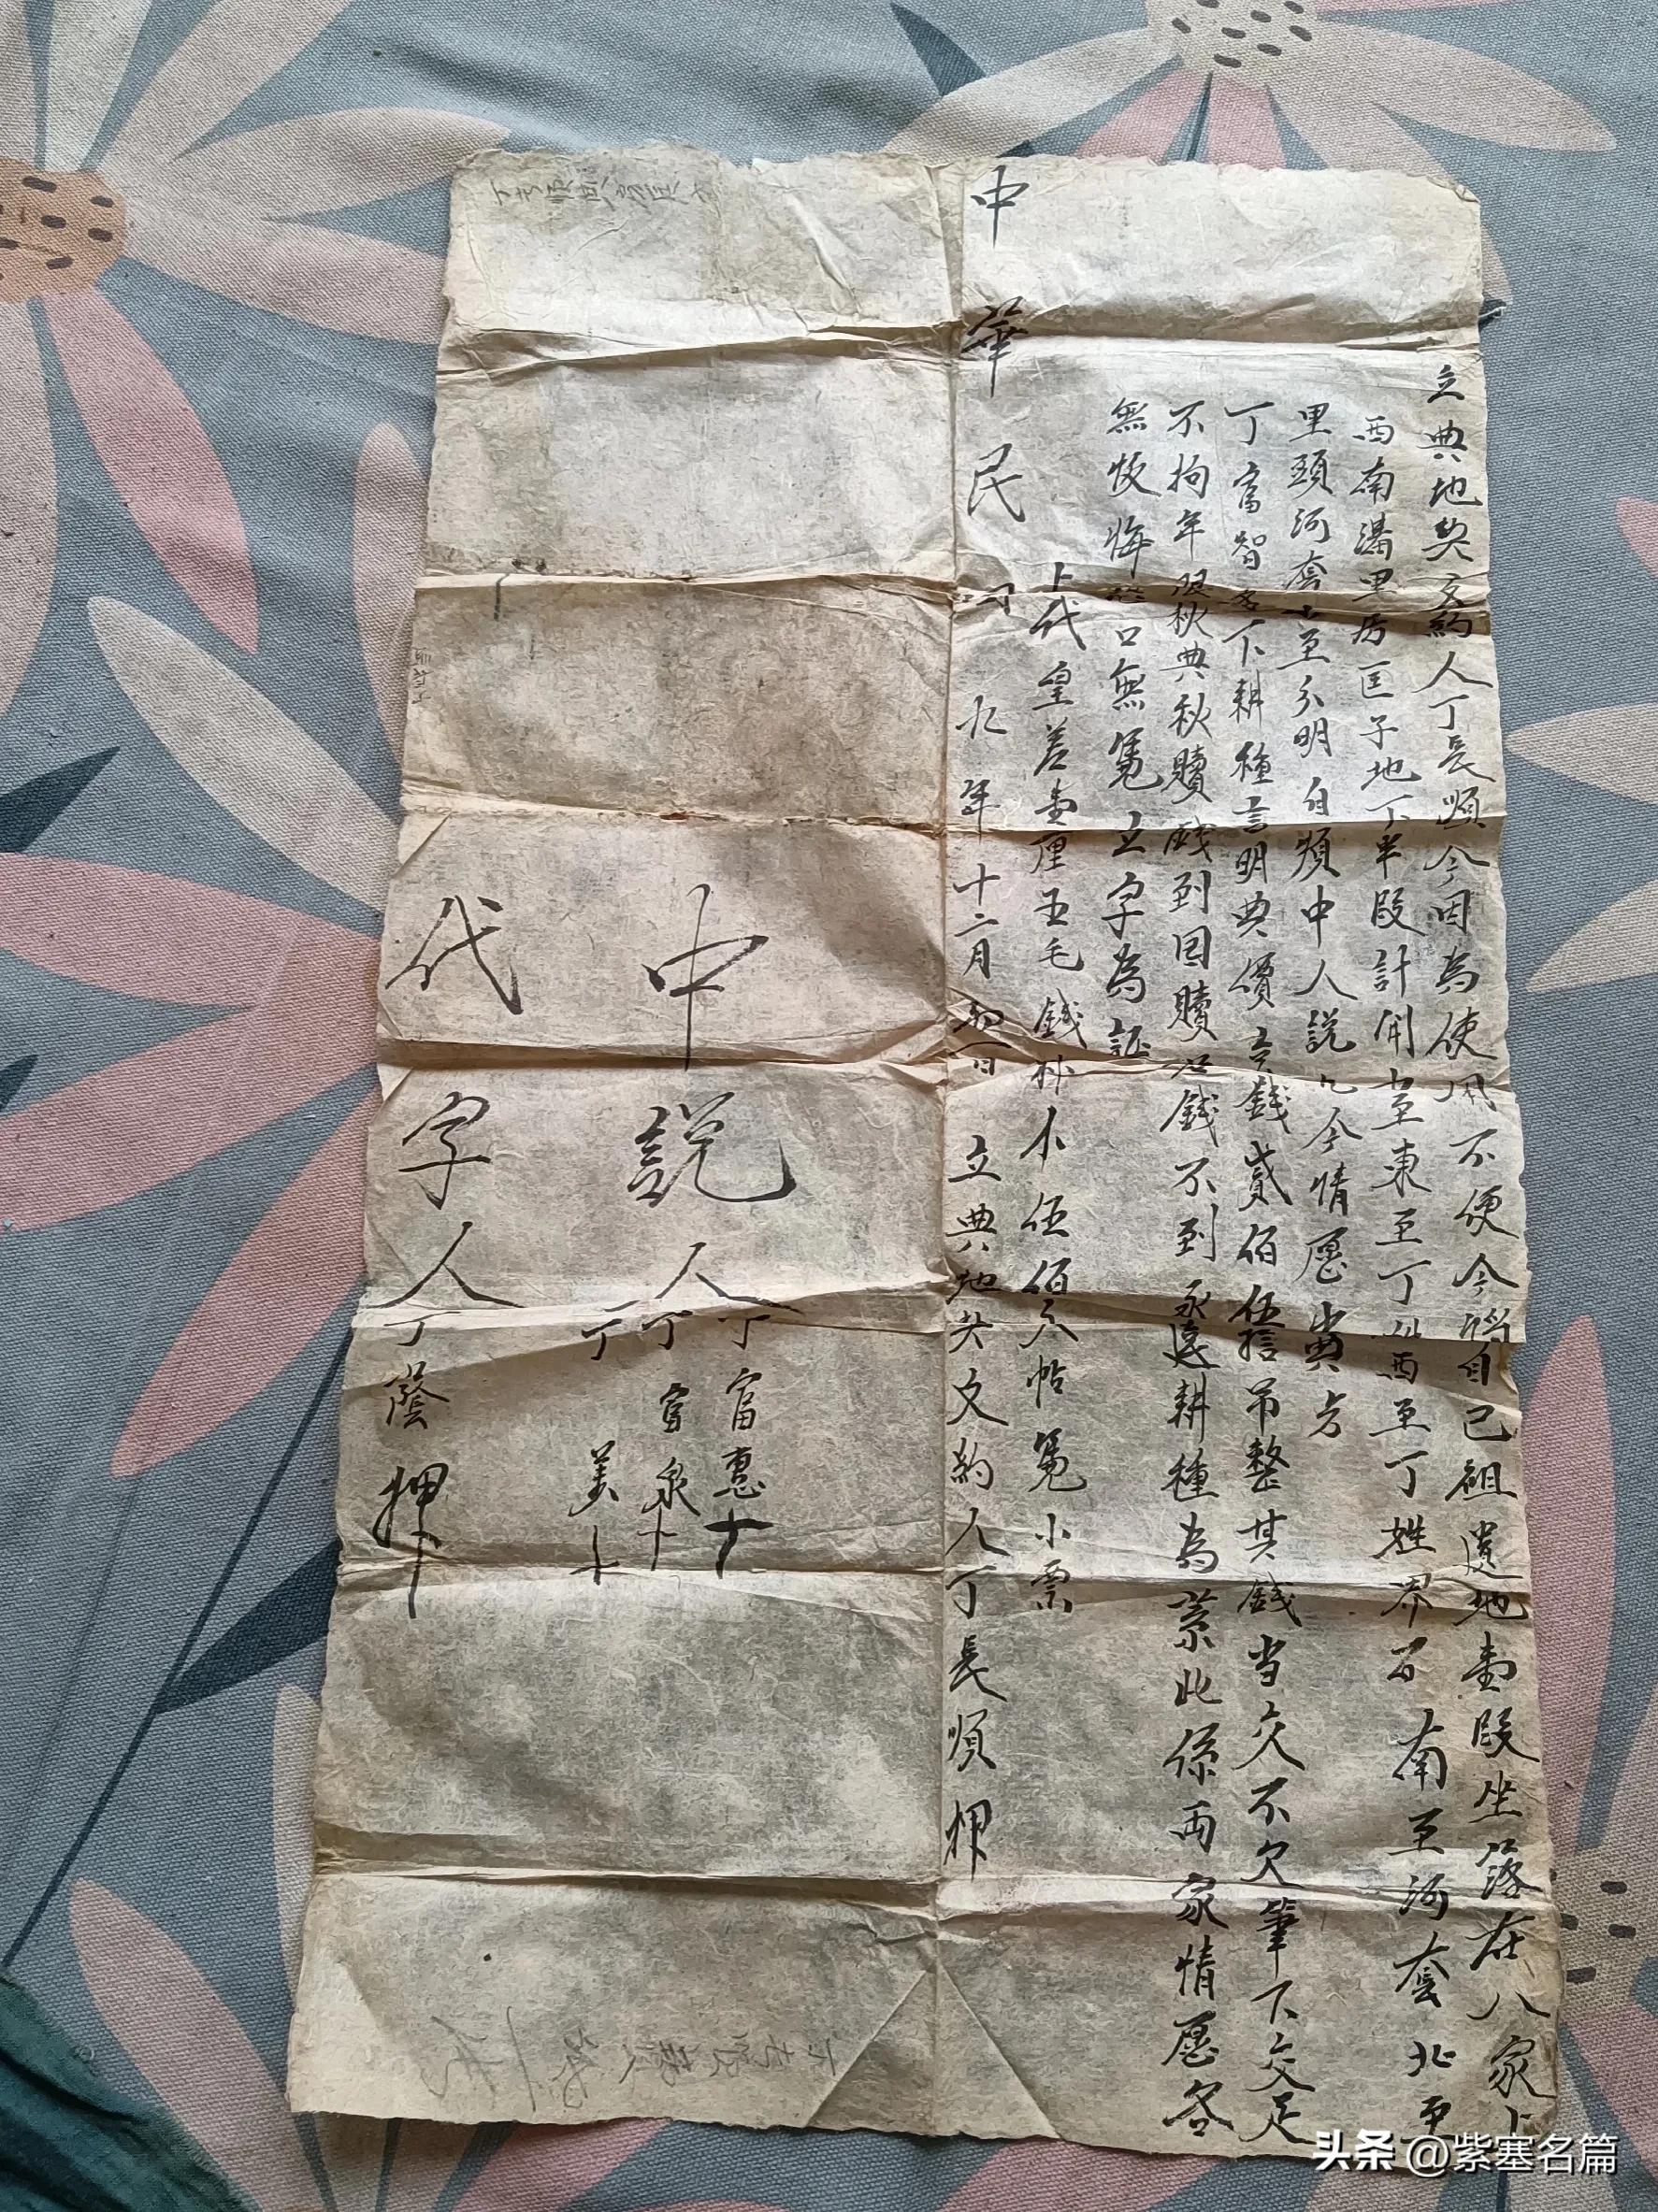 立典地契文約人丁長順今因為使用不便今將自己祖遺地壹段坐落在八家上
西南溝里房匡子地丁半段計開四至東至丁姓西至丁姓界石南至河套北至
里頭河套四至分明自煩中人說允今情愿出典与
丁富智名下耕種言明典價言錢貳佰伍拾吊整其錢当交不欠筆下交足
不拘年限秋典秋贖錢到回贖如錢不到永遠耕種為業此係両家情愿各
無恢悔恐口無凴立字為証
上代皇差壹厘五毛錢外小伍佰天帖凴小票
中華民國九年十二月初一日立典地契文約人丁長順押
中說人丁富惠十
丁富泉十
丁美十
代字人丁蔭押
头条 @紫塞名篇